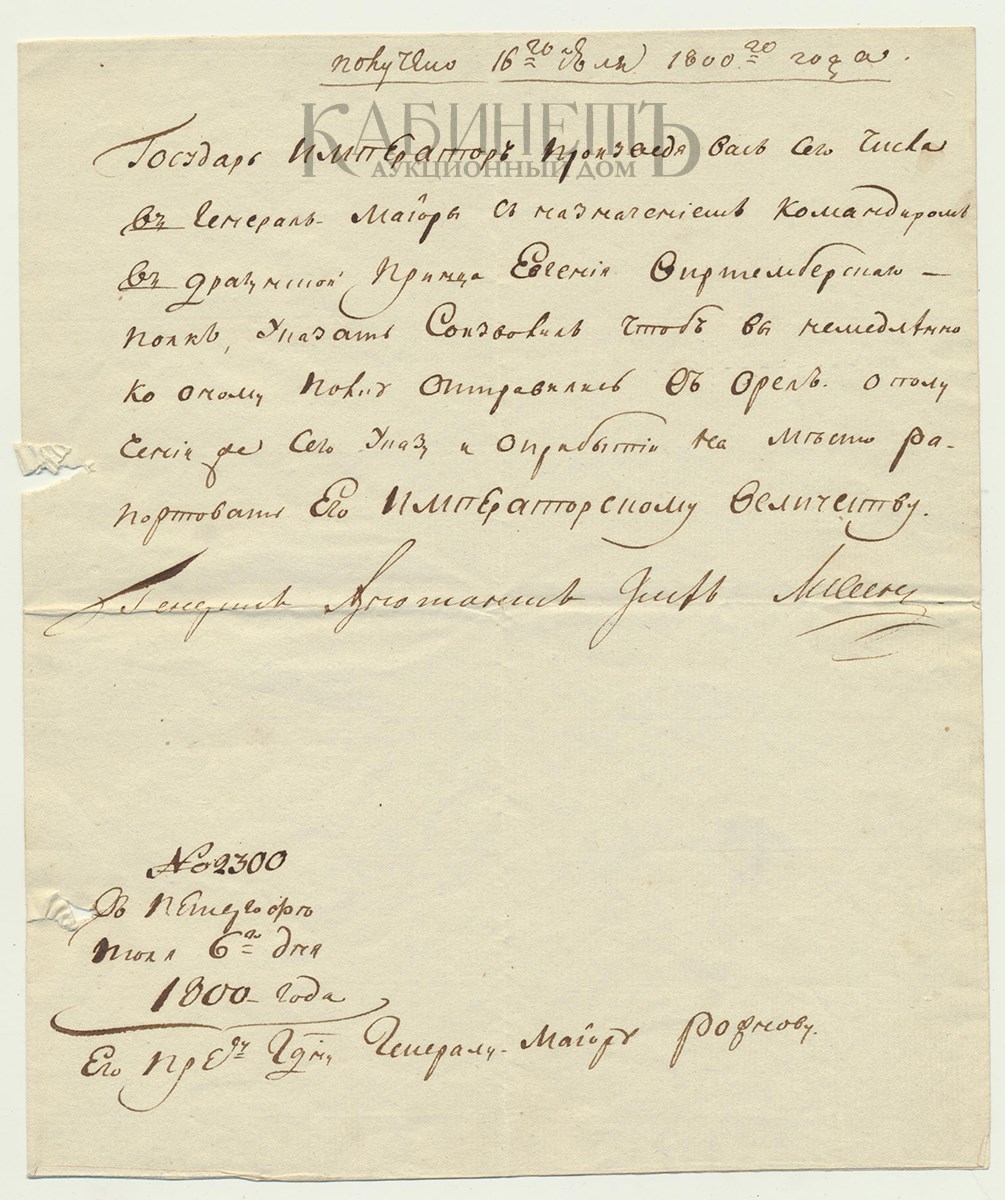 получено 16го Июля 1800го года.
КАБИНЕТЪ
АУКЦИОННЫЙ ДОМ
Государь Императоръ произведя васъ сего числа
въ Генералъ-Маіоры съ назначеніемъ командиромъ
въ драгунской Принца Евгенія Виртемберскаго
полкъ, Указать Соизволилъ чтобъ вы немедлѣнно
ко оному полку отправились въ Орелъ. о полу
ченіи же сего Указу и о прибытіи на мѣсто ра-
портовать Его Императорскому Величеству.
Генералъ Адъютантъ Графъ Ливенъ
№ 2300
Въ Петергофѣ
Іюля 6го дня
1800 года
Его Прев Гдну Генералу-Маіору